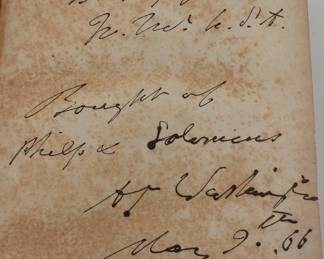 Bought of
Philp & Solomons
At Washington
May 9th. 66